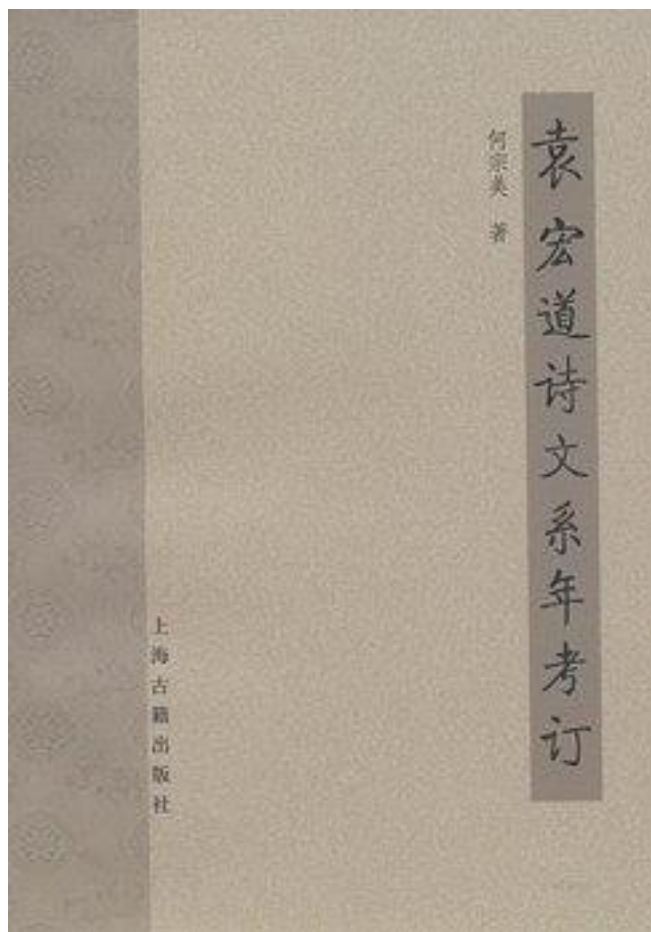 袁宏道诗文系年考订
何宗美 著
上海古籍出版社